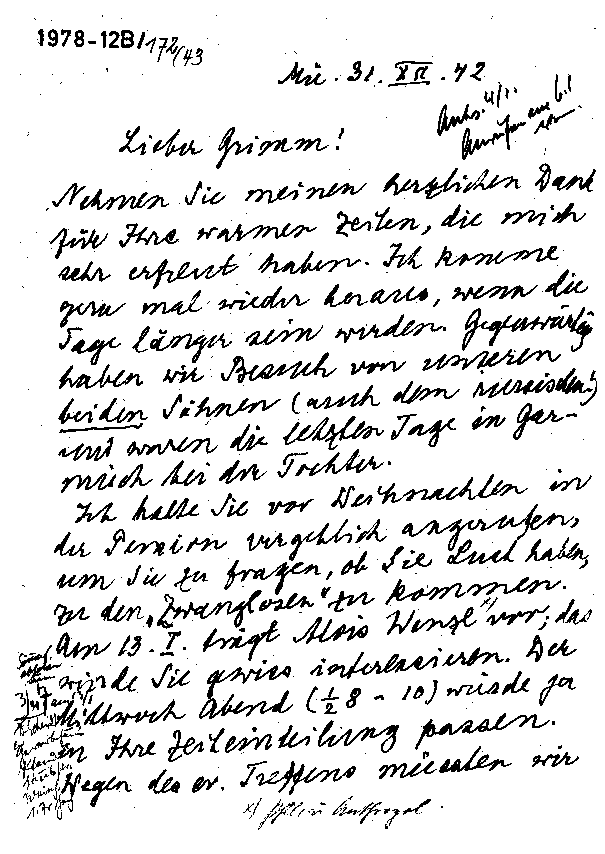 1978-12B/172/43
Mü. 31. XII. 42
Lieber Grimm!
Nehmen Sie meinen herzlichen Dank
für Ihre warmen Zeilen, die mich
sehr erfreut haben. Ich komme
gern mal wieder heraus, wenn die
Tage länger sein werden. Gegenwärtig
haben wir Besuch von unseren
beiden Söhnen (auch dem russischen!)
und waren die letzten Tage in Gar-
misch bei der Tochter.
Ich hatte Sie vor Weihnachten in
der Pension vergeblich angerufen,
um Sie zu fragen, ob Sie Lust haben,
zu den „Zwanglosen" zu kommen.
Am 13. I. trägt Alois Wenzl x) vor; das
würde Sie gewiss interessieren. Der
Mittwoch Abend (½8 - 10) würde ja
in Ihre Zeiteinteilung passen.
Wegen des ev. Treffens müssten wir